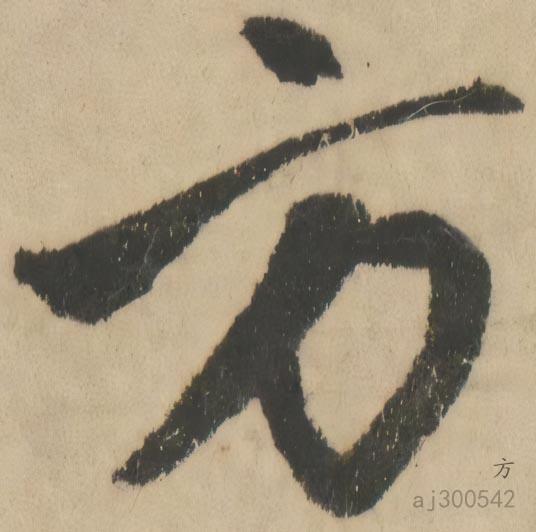 方
方
aj300542